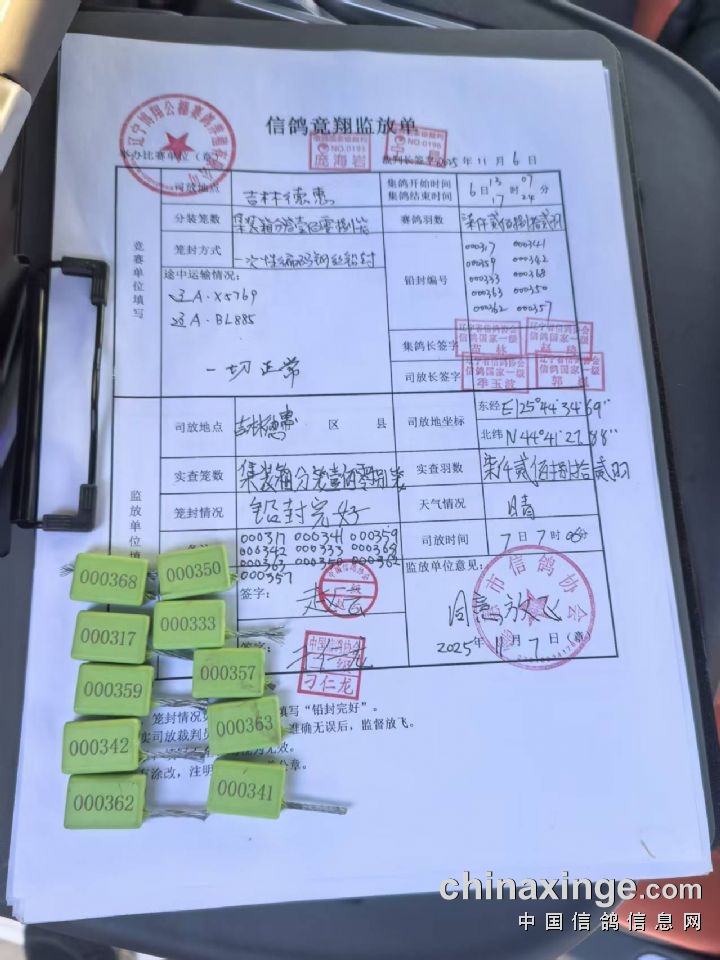 信鸽竞翔监放单
承办比赛单位（章）
裁判长签字 2025年 11月 6日
NO.0191
庞海岩
NO.0196
竞赛单位填写
司放地点 吉林德惠
集鸽开始时间 6日 13时 07分
集鸽结束时间 17 24
分装笼数
赛鸽羽数 柒仟贰佰捌拾贰羽
笼封方式 一次性编码钢丝铅封
铅封编号
000317 000341
000359 000342
000333 000368
000363 000350
000362 000357
途中运输情况：
辽A·X5769
辽A·BL885
一切正常
集鸽长签字
辽宁省信鸽协会
信鸽国家一级
辽宁省信鸽协会
信鸽国家一级
司放长签字
辽宁省信鸽协会
信鸽国家一级
季玉波
辽宁省信鸽协会
信鸽国家一级
监放单位填
司放地点 吉林德惠 区 县
司放地坐标
东经 E125°44′34.69″
北纬 N44°41′27.88″
实查笼数
实查羽数 柒仟贰佰捌拾贰羽
笼封情况 铅封完好
天气情况 晴
000317 000341 000359
000342 000333 000368
000363 000350 000362
000357
司放时间 7日 7时
签字：
监放单位意见：
同意放飞
市信鸽协会
2025年 11月 7日（章）
签字：
中国信鸽协会
刁仁龙
笼封情况
填写“铅封完好”。
实司放裁判员
准确无误后，监督放飞。
为无效。
涂改，注明
公章。
000368
000350
000317
000333
000359
000357
000342
000363
000362
000341
chinaxinge.com
中国信鸽信息网